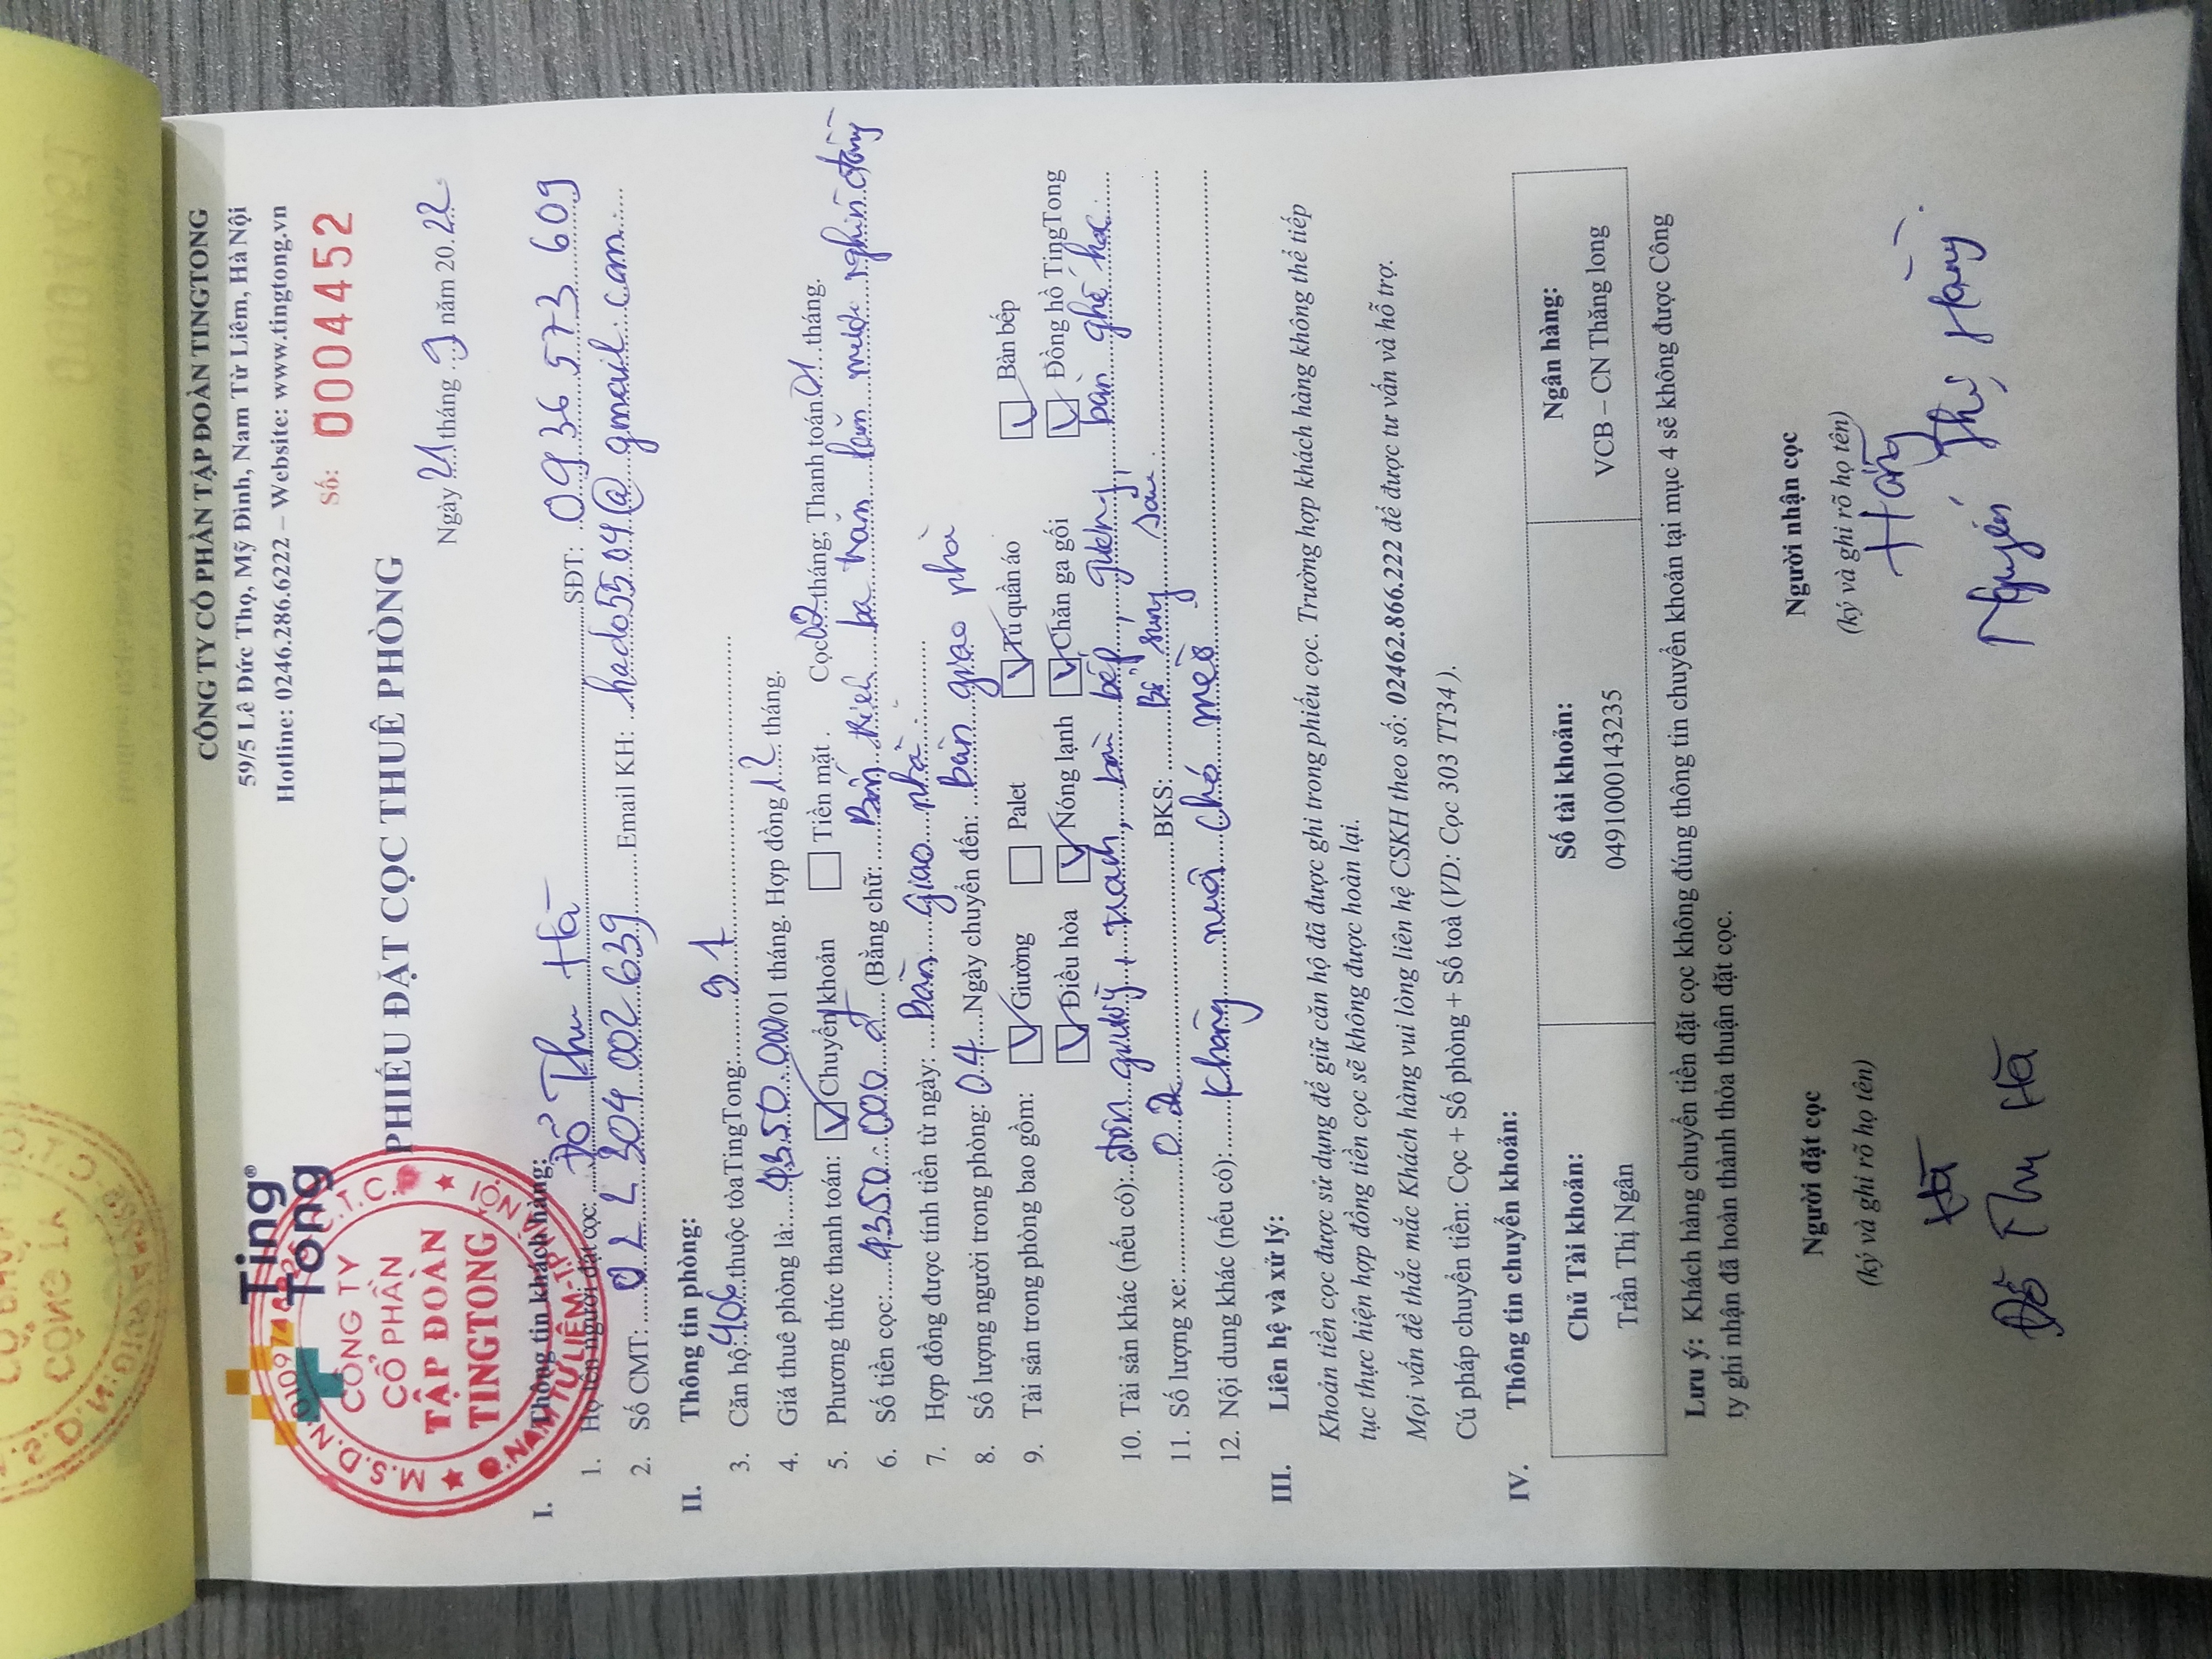 Ting Tong®
CÔNG TY CỔ PHẦN TẬP ĐOÀN TINGTONG
59/5 Lê Đức Thọ, Mỹ Đình, Nam Từ Liêm, Hà Nội
Hotline: 0246.286.6222 – Website: www.tingtong.vn
Số: 0004452
PHIẾU ĐẶT CỌC THUÊ PHÒNG
Ngày 21 tháng 9 năm 20.22
CÔNG TY
CỔ PHẦN
TẬP ĐOÀN
TINGTONG
I. Thông tin khách hàng:
1. Họ tên người đặt cọc: Đỗ Thu Hà SĐT: 0936 573 609
2. Số CMT: 022 304 002 639 Email KH: hado5504@gmail.com
II. Thông tin phòng:
3. Căn hộ 406 thuộc tòa TingTong: 91
4. Giá thuê phòng là: 4350.000/01 tháng. Hợp đồng 12 tháng.
5. Phương thức thanh toán: Chuyển khoản Tiền mặt . Cọc 02 tháng; Thanh toán 01 tháng.
6. Số tiền cọc: 4350.000 đ (Bằng chữ: Bốn triệu ba trăm năm mươi nghìn đồng
7. Hợp đồng được tính tiền từ ngày: Bàn giao nhà
8. Số lượng người trong phòng: 04 Ngày chuyển đến: bàn giao nhà
9. Tài sản trong phòng bao gồm: Giường Palet Tủ quần áo Bàn bếp
Điều hòa Nóng lạnh Chăn ga gối Đồng hồ TingTong
10. Tài sản khác (nếu có): bàn bếp, bàn ghế học
11. Số lượng xe: 02 BKS: Bổ sung sau.
12. Nội dung khác (nếu có): Không nuôi chó mèo
III. Liên hệ và xử lý:
Khoản tiền cọc được sử dụng để giữ căn hộ đã được ghi trong phiếu cọc. Trường hợp khách hàng không thể tiếp
tục thực hiện hợp đồng tiền cọc sẽ không được hoàn lại.
Mọi vấn đề thắc mắc Khách hàng vui lòng liên hệ CSKH theo số: 02462.866.222 để được tư vấn và hỗ trợ.
Cú pháp chuyển tiền: Cọc + Số phòng + Số toà (VD: Cọc 303 TT34 ).
IV. Thông tin chuyển khoản:
Chủ Tài khoản: Số tài khoản: Ngân hàng:
Trần Thị Ngân 0491000143235 VCB – CN Thăng long
Lưu ý: Khách hàng chuyển tiền đặt cọc không đúng thông tin chuyển khoản tại mục 4 sẽ không được Công
ty ghi nhận đã hoàn thành thỏa thuận đặt cọc.
Người đặt cọc Người nhận cọc
(ký và ghi rõ họ tên) (ký và ghi rõ họ tên)
Hà Hằng
Đỗ Thu Hà Nguyễn Thị Hằng